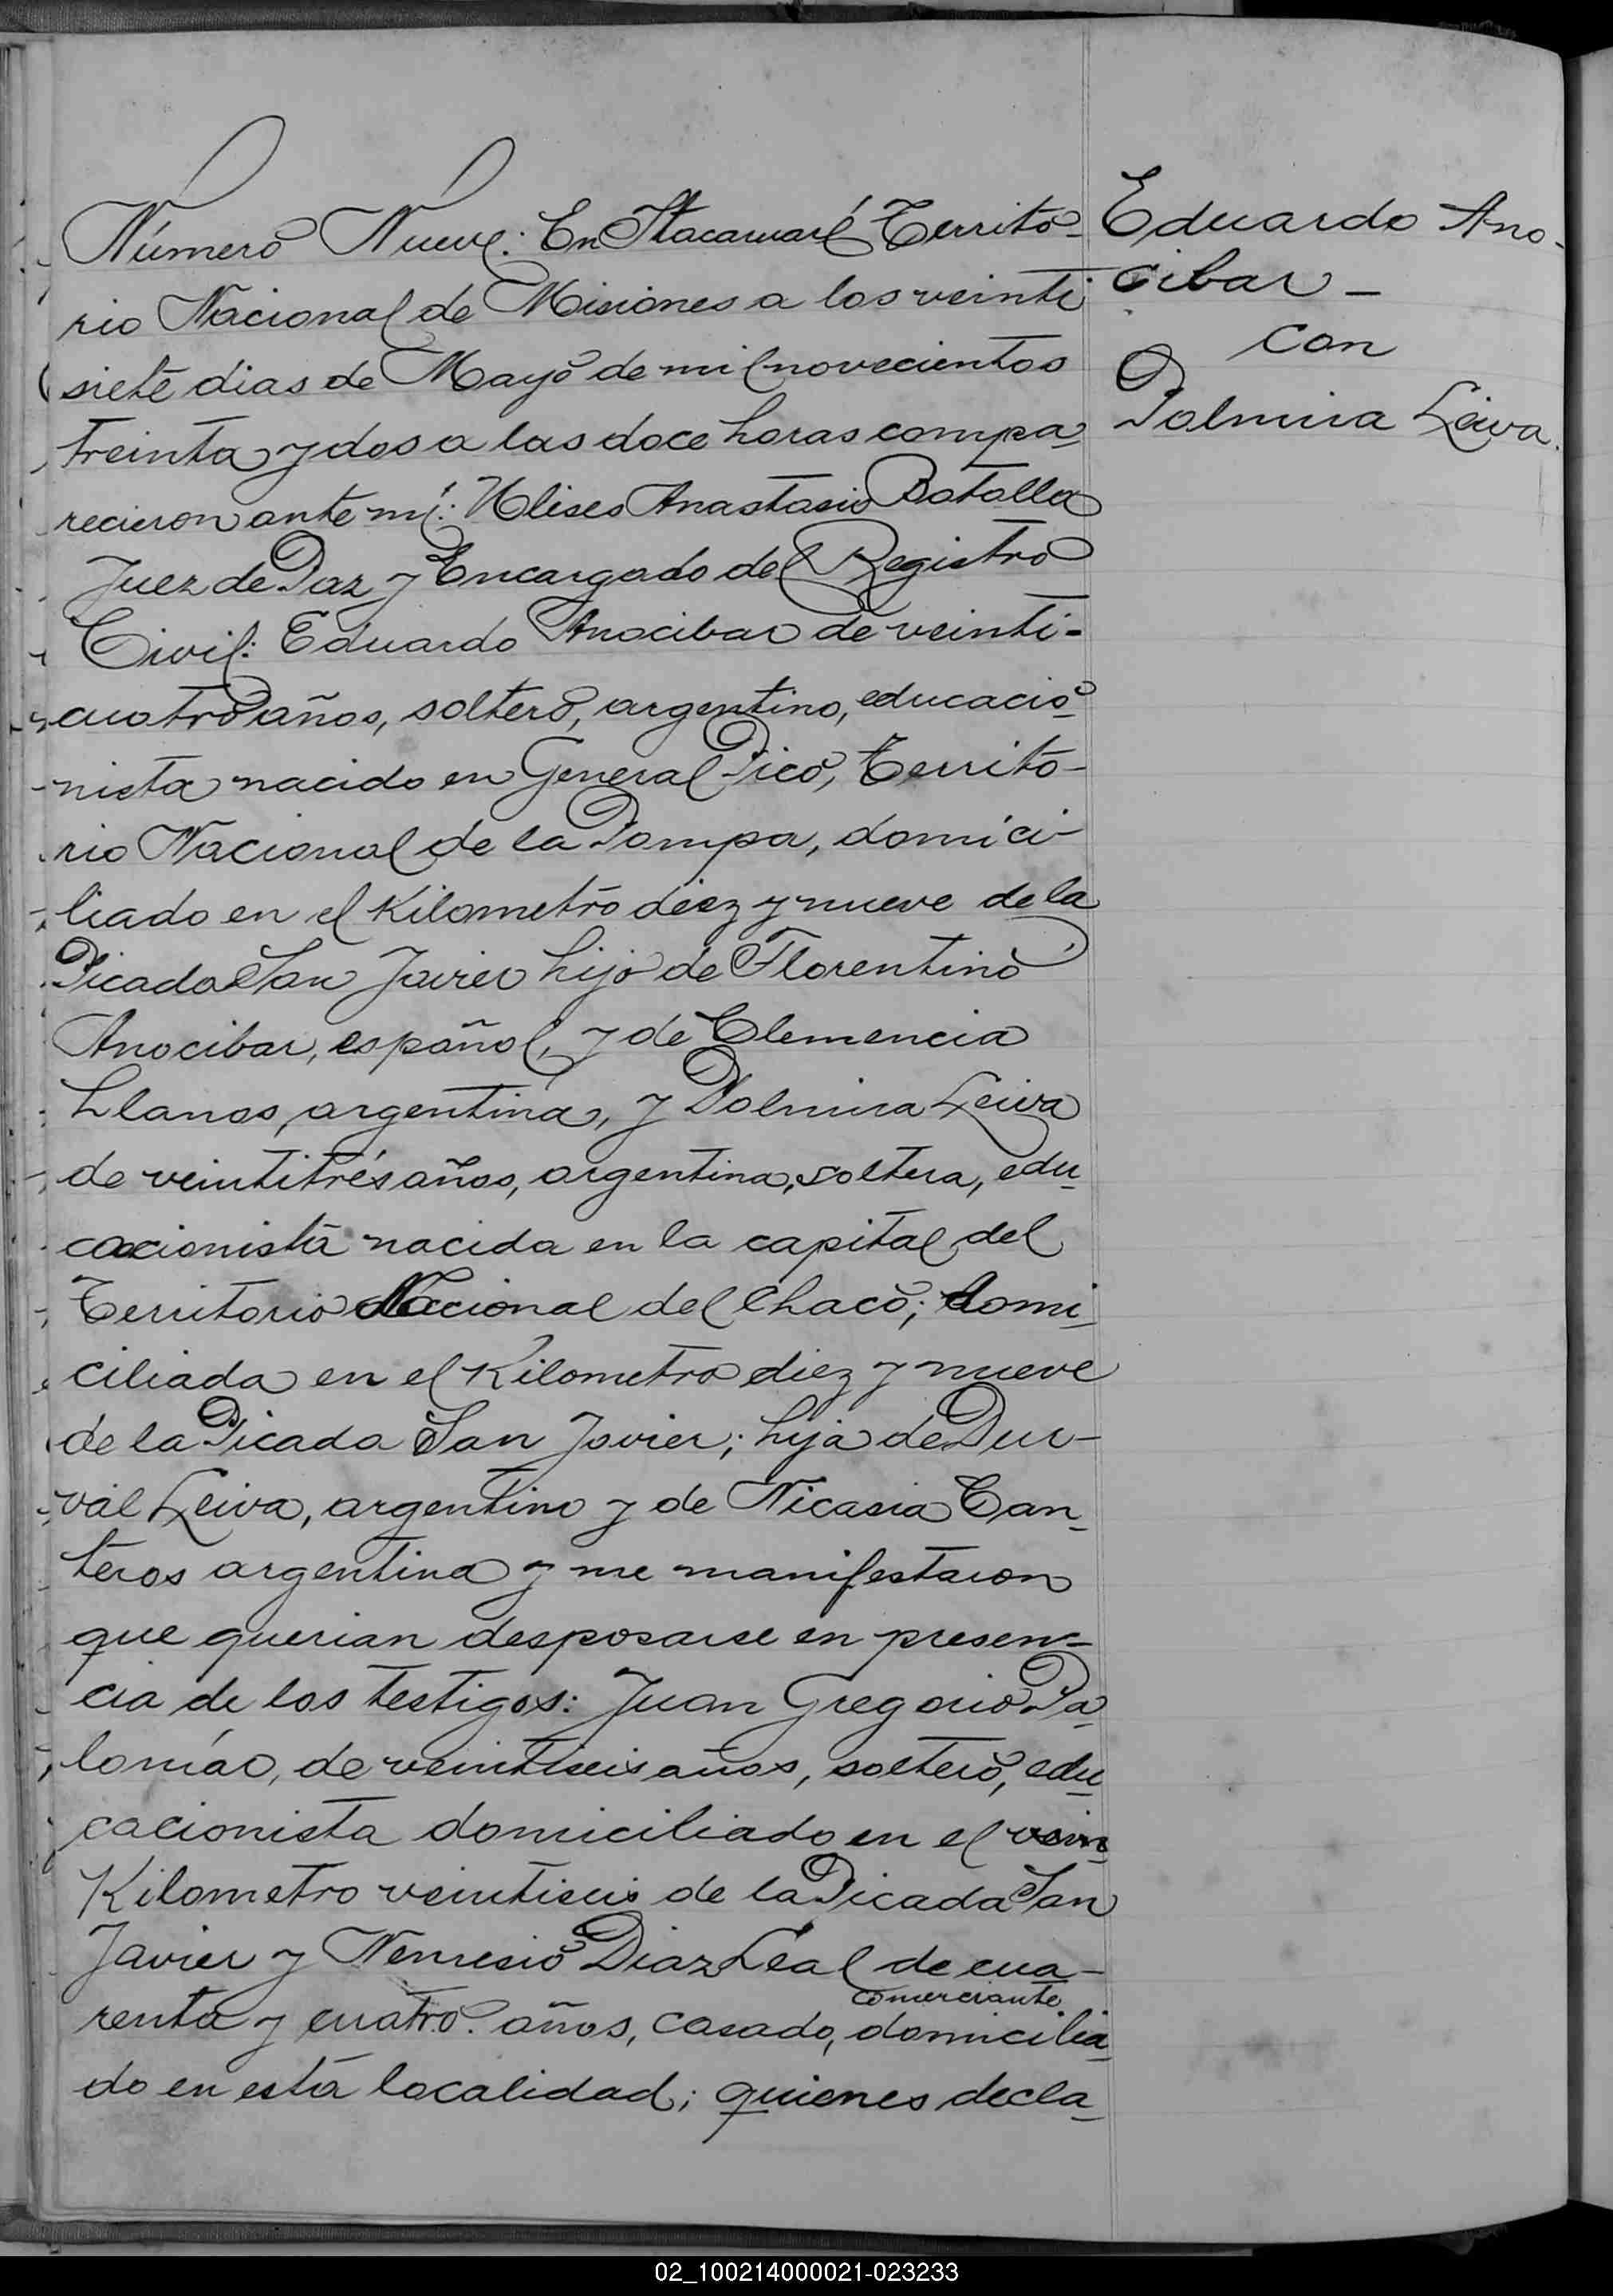 Número Nueve: En Itacaruaré Territo-
rio Nacional de Misiones a los veinti
siete dias de Mayo de mil novecientos
treinta y dos a las doce horas compa-
recieron ante mí: Ulises Anastasio Batalla
Juez de Paz y Encargado del Registro
Civil: Eduardo Anocibar de veinti-
cuatro años, soltero, argentino, educacio-
nista nacido en General Pico, Territo-
rio Nacional de la Pampa, domici-
liado en el Kilometro diez y nueve de la
Picada San Javier hijo de Florentino
Anocibar, español, y de Clemencia
Llanos, argentina, y Palmira Leiva
de veintitrés años, argentina, soltera, edu-
cacionista nacida en la capital del
Territorio Nacional del Chaco; domi-
ciliada en el Kilometro diez y nueve
de la Picada San Javier; hija de Dur-
val Leiva, argentino y de Nicasia Can-
teros argentina y me manifestaron
que querian desposarse en presen-
cia de los testigos: Juan Gregorio Pa-
lomar, de veintiseis años, soltero, edu-
cacionista domiciliado en el vein
Kilometro veintiseis de la Picada San
Javier y Nemesio Diaz Leal de cua-
comerciante
renta y cuatro años, casado, domicilia-
do en esta localidad; quienes decla-
Eduardo Ano-
cibar -
con
Palmira Leiva.
02_100214000021-023233